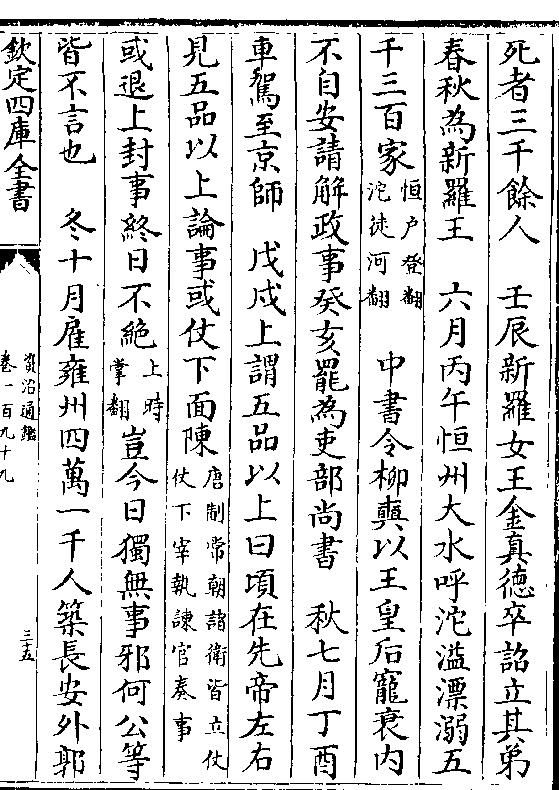 死者三千餘人　壬辰新羅女王金真德卒詔立其弟
春秋為新羅王　六月丙午恒州大水呼沱溢漂溺五
千三百家
恒户登翻
沱徒河翻
中書令柳奭以王皇后寵衰内
不自安請解政事癸亥罷為吏部尚書　秋七月丁酉
車駕至京師　戊戌上謂五品以上曰頃在先帝左右
見五品以上論事或仗下面陳
唐制常朝諸衛皆立仗
仗下宰執諫官奏事
或退上封事終日不絶
上時
掌翻
豈今日獨無事邪何公等
皆不言也　冬十月雇雍州四萬一千人築長安外郭
欽定四庫全書
資治通鑑
卷一百九十九
三十五